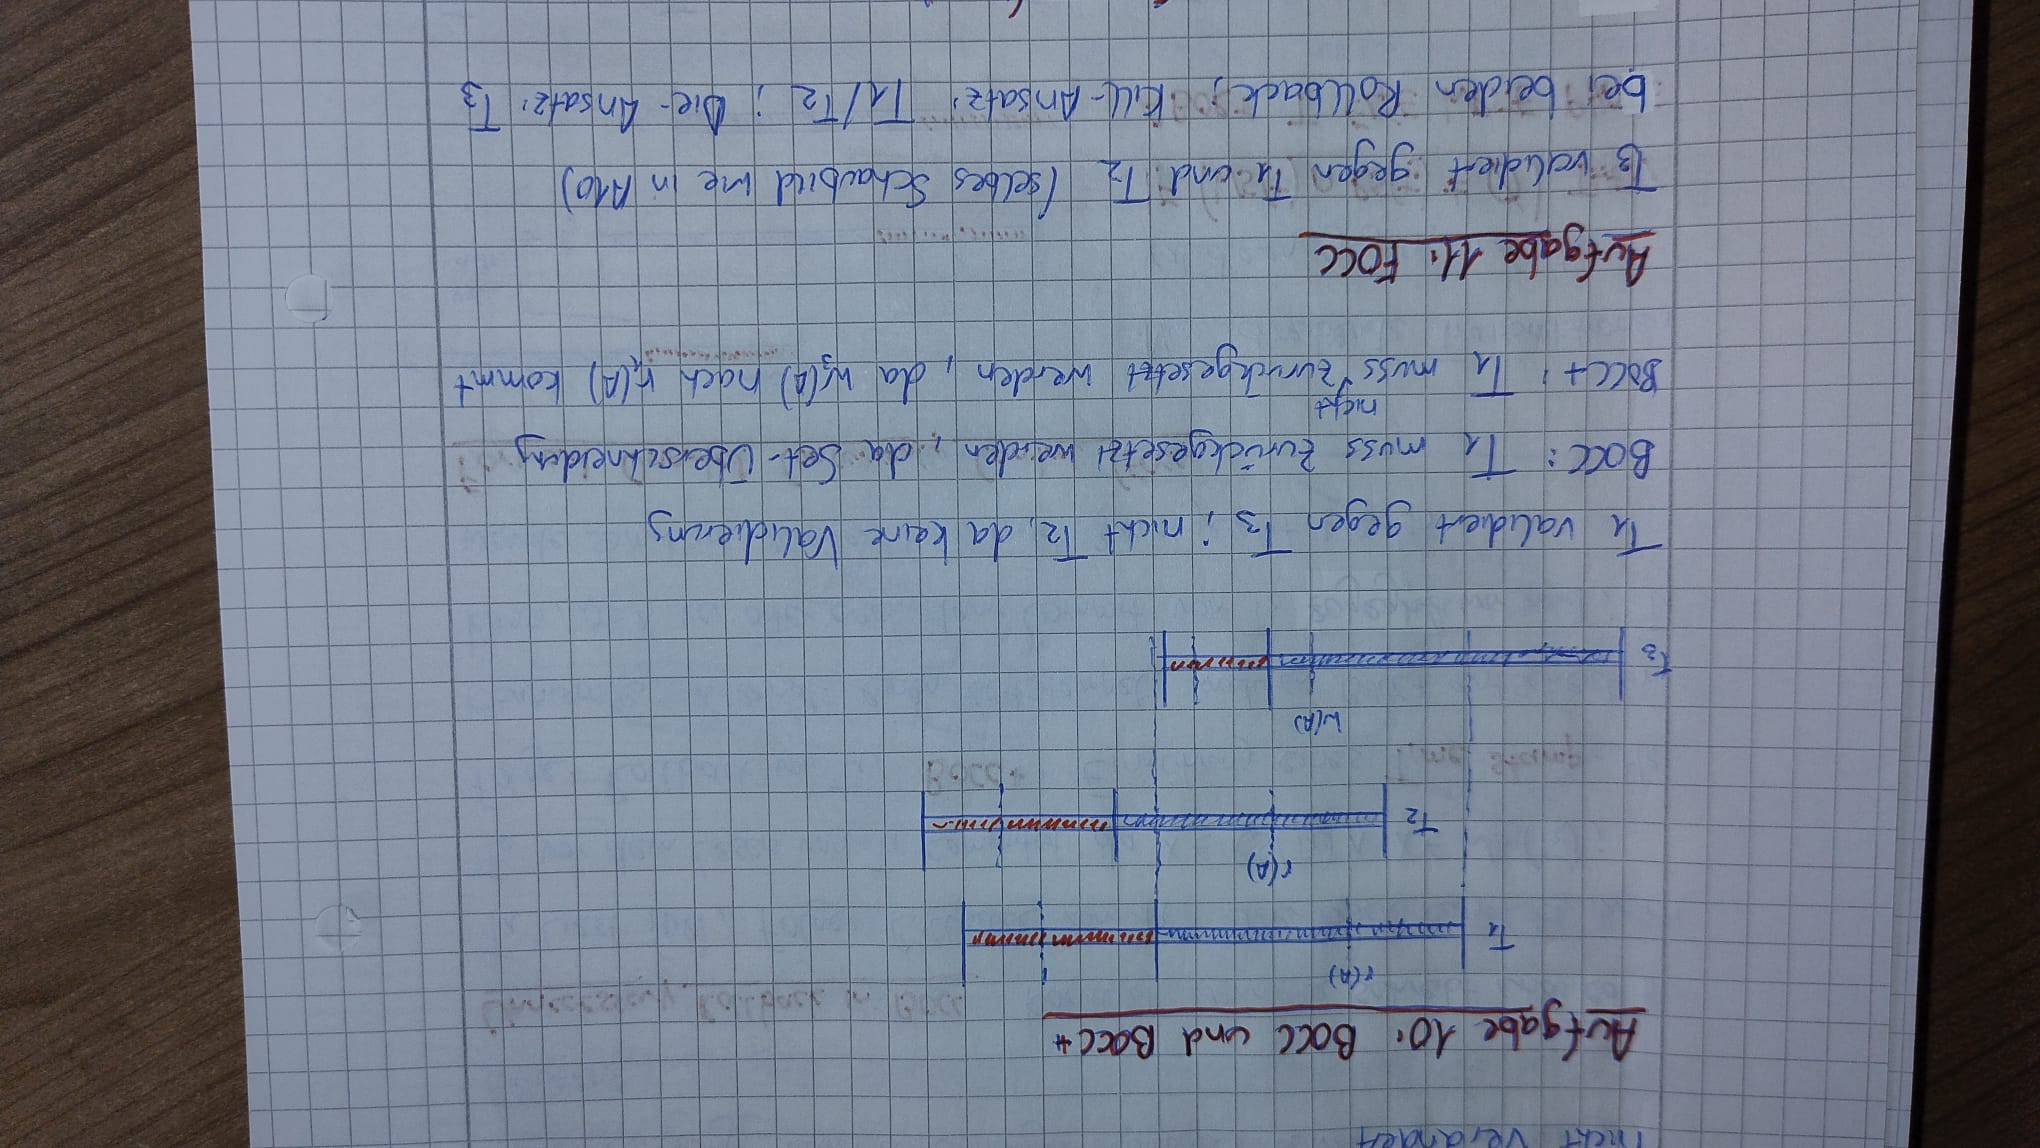 nicht verändert
Aufgabe 10: BOCC und BOCC+
r(A)
T1
r(A)
T2
w(A)
T3
T1 validiert gegen T3 ; nicht T2, da keine Validierung
BOCC: T1 muss zurückgesetzt werden, da Set-Überschneidung
nicht
BOCC+: T1 muss zurückgesetzt werden, da w3(A) nach r1(A) kommt
Aufgabe 11: FOCC
T3 validiert gegen T1 und T2 (selbes Schaubild wie in A10)
bei beiden Rollback; Kill-Ansatz: T1/T2 ; Die-Ansatz: T3